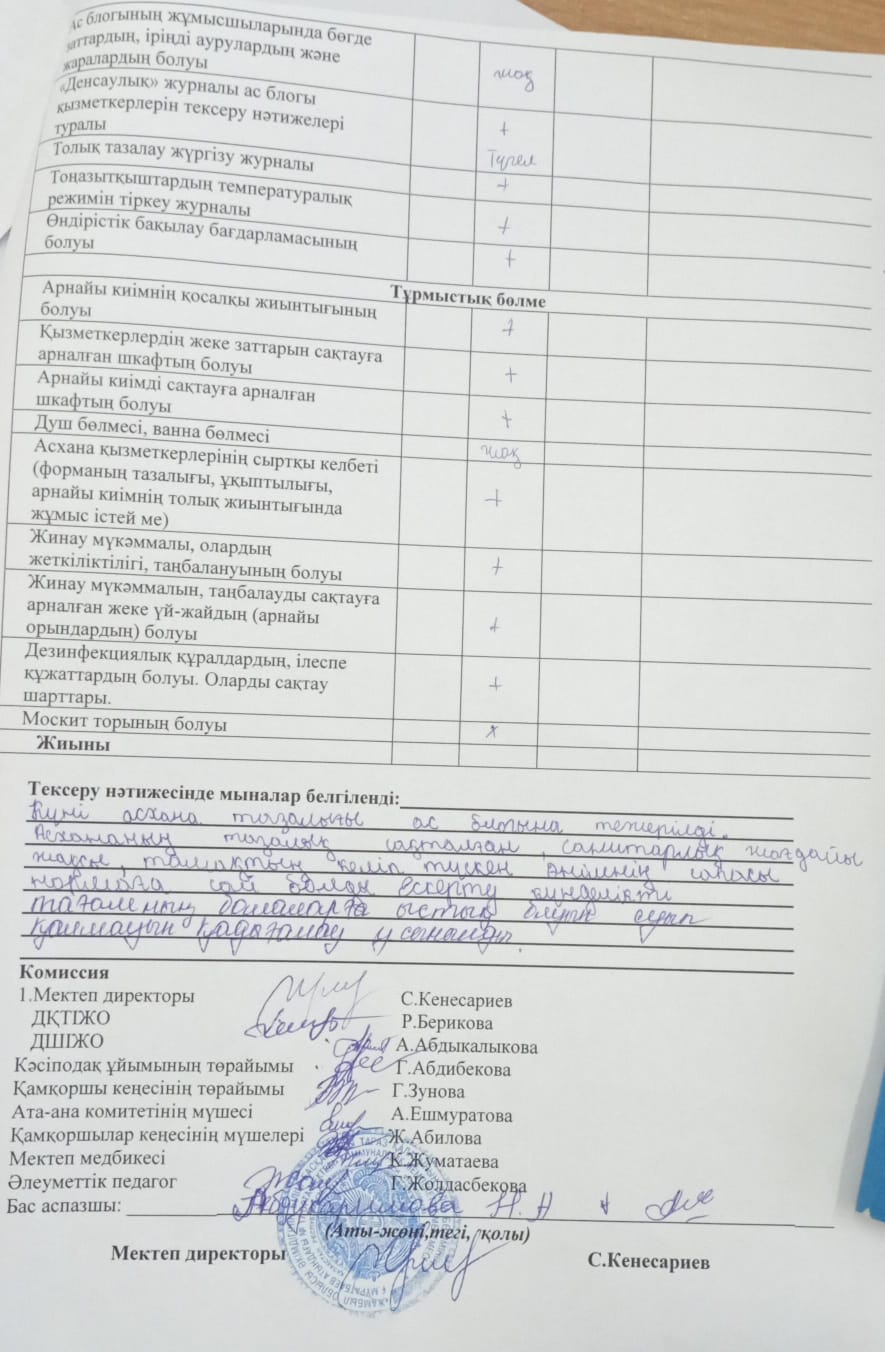 Ас блогының жұмысшыларында бөгде
заттардың, іріңді аурулардың және
жаралардың болуы жоқ
«Денсаулық» журналы ас блогы
қызметкерлерін тексеру нәтижелері
туралы +
Толық тазалау жүргізу журналы Түгел
Тоңазытқыштардың температуралық +
режимін тіркеу журналы
Өндірістік бақылау бағдарламасының +
болуы +
Тұрмыстық бөлме
Арнайы киімнің қосалқы жиынтығының
болуы +
Қызметкерлердің жеке заттарын сақтауға
арналған шкафтың болуы +
Арнайы киімді сақтауға арналған
шкафтың болуы +
Душ бөлмесі, ванна бөлмесі жоқ
Асхана қызметкерлерінің сыртқы келбеті
(форманың тазалығы, ұқыптылығы,
арнайы киімнің толық жиынтығында +
жұмыс істей ме)
Жинау мүкәммалы, олардың
жеткіліктілігі, таңбалануының болуы +
Жинау мүкәммалын, таңбалауды сақтауға
арналған жеке үй-жайдың (арнайы
орындардың) болуы +
Дезинфекциялық құралдардың, ілеспе
құжаттардың болуы. Оларды сақтау +
шарттары.
Москит торының болуы x
Жиыны
Тексеру нәтижесінде мыналар белгіленді:
Күні асхана тазалығы ас батына тексерілді.
Асхананың тазалық сақталған, санитарлық жағдайы
жақсы, тамақтың келіп түскен өнімнің сапасы
нормаға сай болды Ескерту күнделікті
тағамның балаларға ыстық
қалмауын қадағалау ұсынылды.
Комиссия
1.Мектеп директоры С.Кенесариев
ДҚТІЖО Р.Берикова
ДШІЖО А.Абдыкалыкова
Кәсіподақ ұйымының төрайымы Г.Абдибекова
Қамқоршы кеңесінің төрайымы Г.Зунова
Ата-ана комитетінің мүшесі А.Ешмуратова
Қамқоршылар кеңесінің мүшелері Ж.Абилова
Мектеп медбикесі К.Жуматаева
Әлеуметтік педагог Г.Жолдасбекова
Бас аспазшы: Абдукаримова Н.А
(Аты-жөні,тегі, қолы)
Мектеп директоры С.Кенесариев